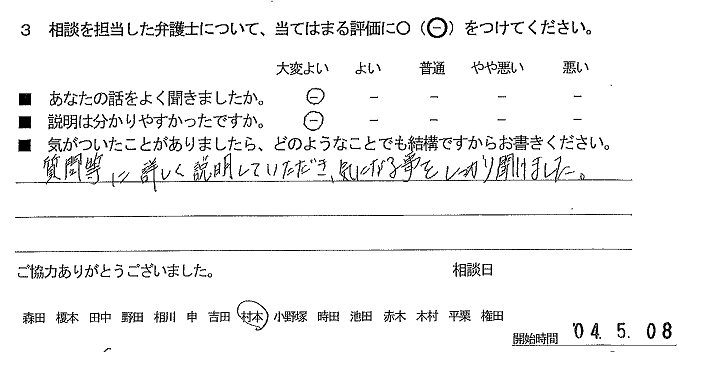 3 相談を担当した弁護士について、当てはまる評価に○（㊀）をつけてください。
大変よい よい 普通 やや悪い 悪い
■ あなたの話をよく聞きましたか。 ㊀ － － － －
■ 説明は分かりやすかったですか。 ㊀ － － － －
■ 気がついたことがありましたら、どのようなことでも結構ですからお書きください。
質問等に詳しく説明していただき、気になる事をしっかり聞けました。
ご協力ありがとうございました。 相談日
森田 榎本 田中 野田 相川 申 吉田 村本 小野塚 時田 池田 赤木 木村 平栗 権田
開始時間 '04. 5. 08